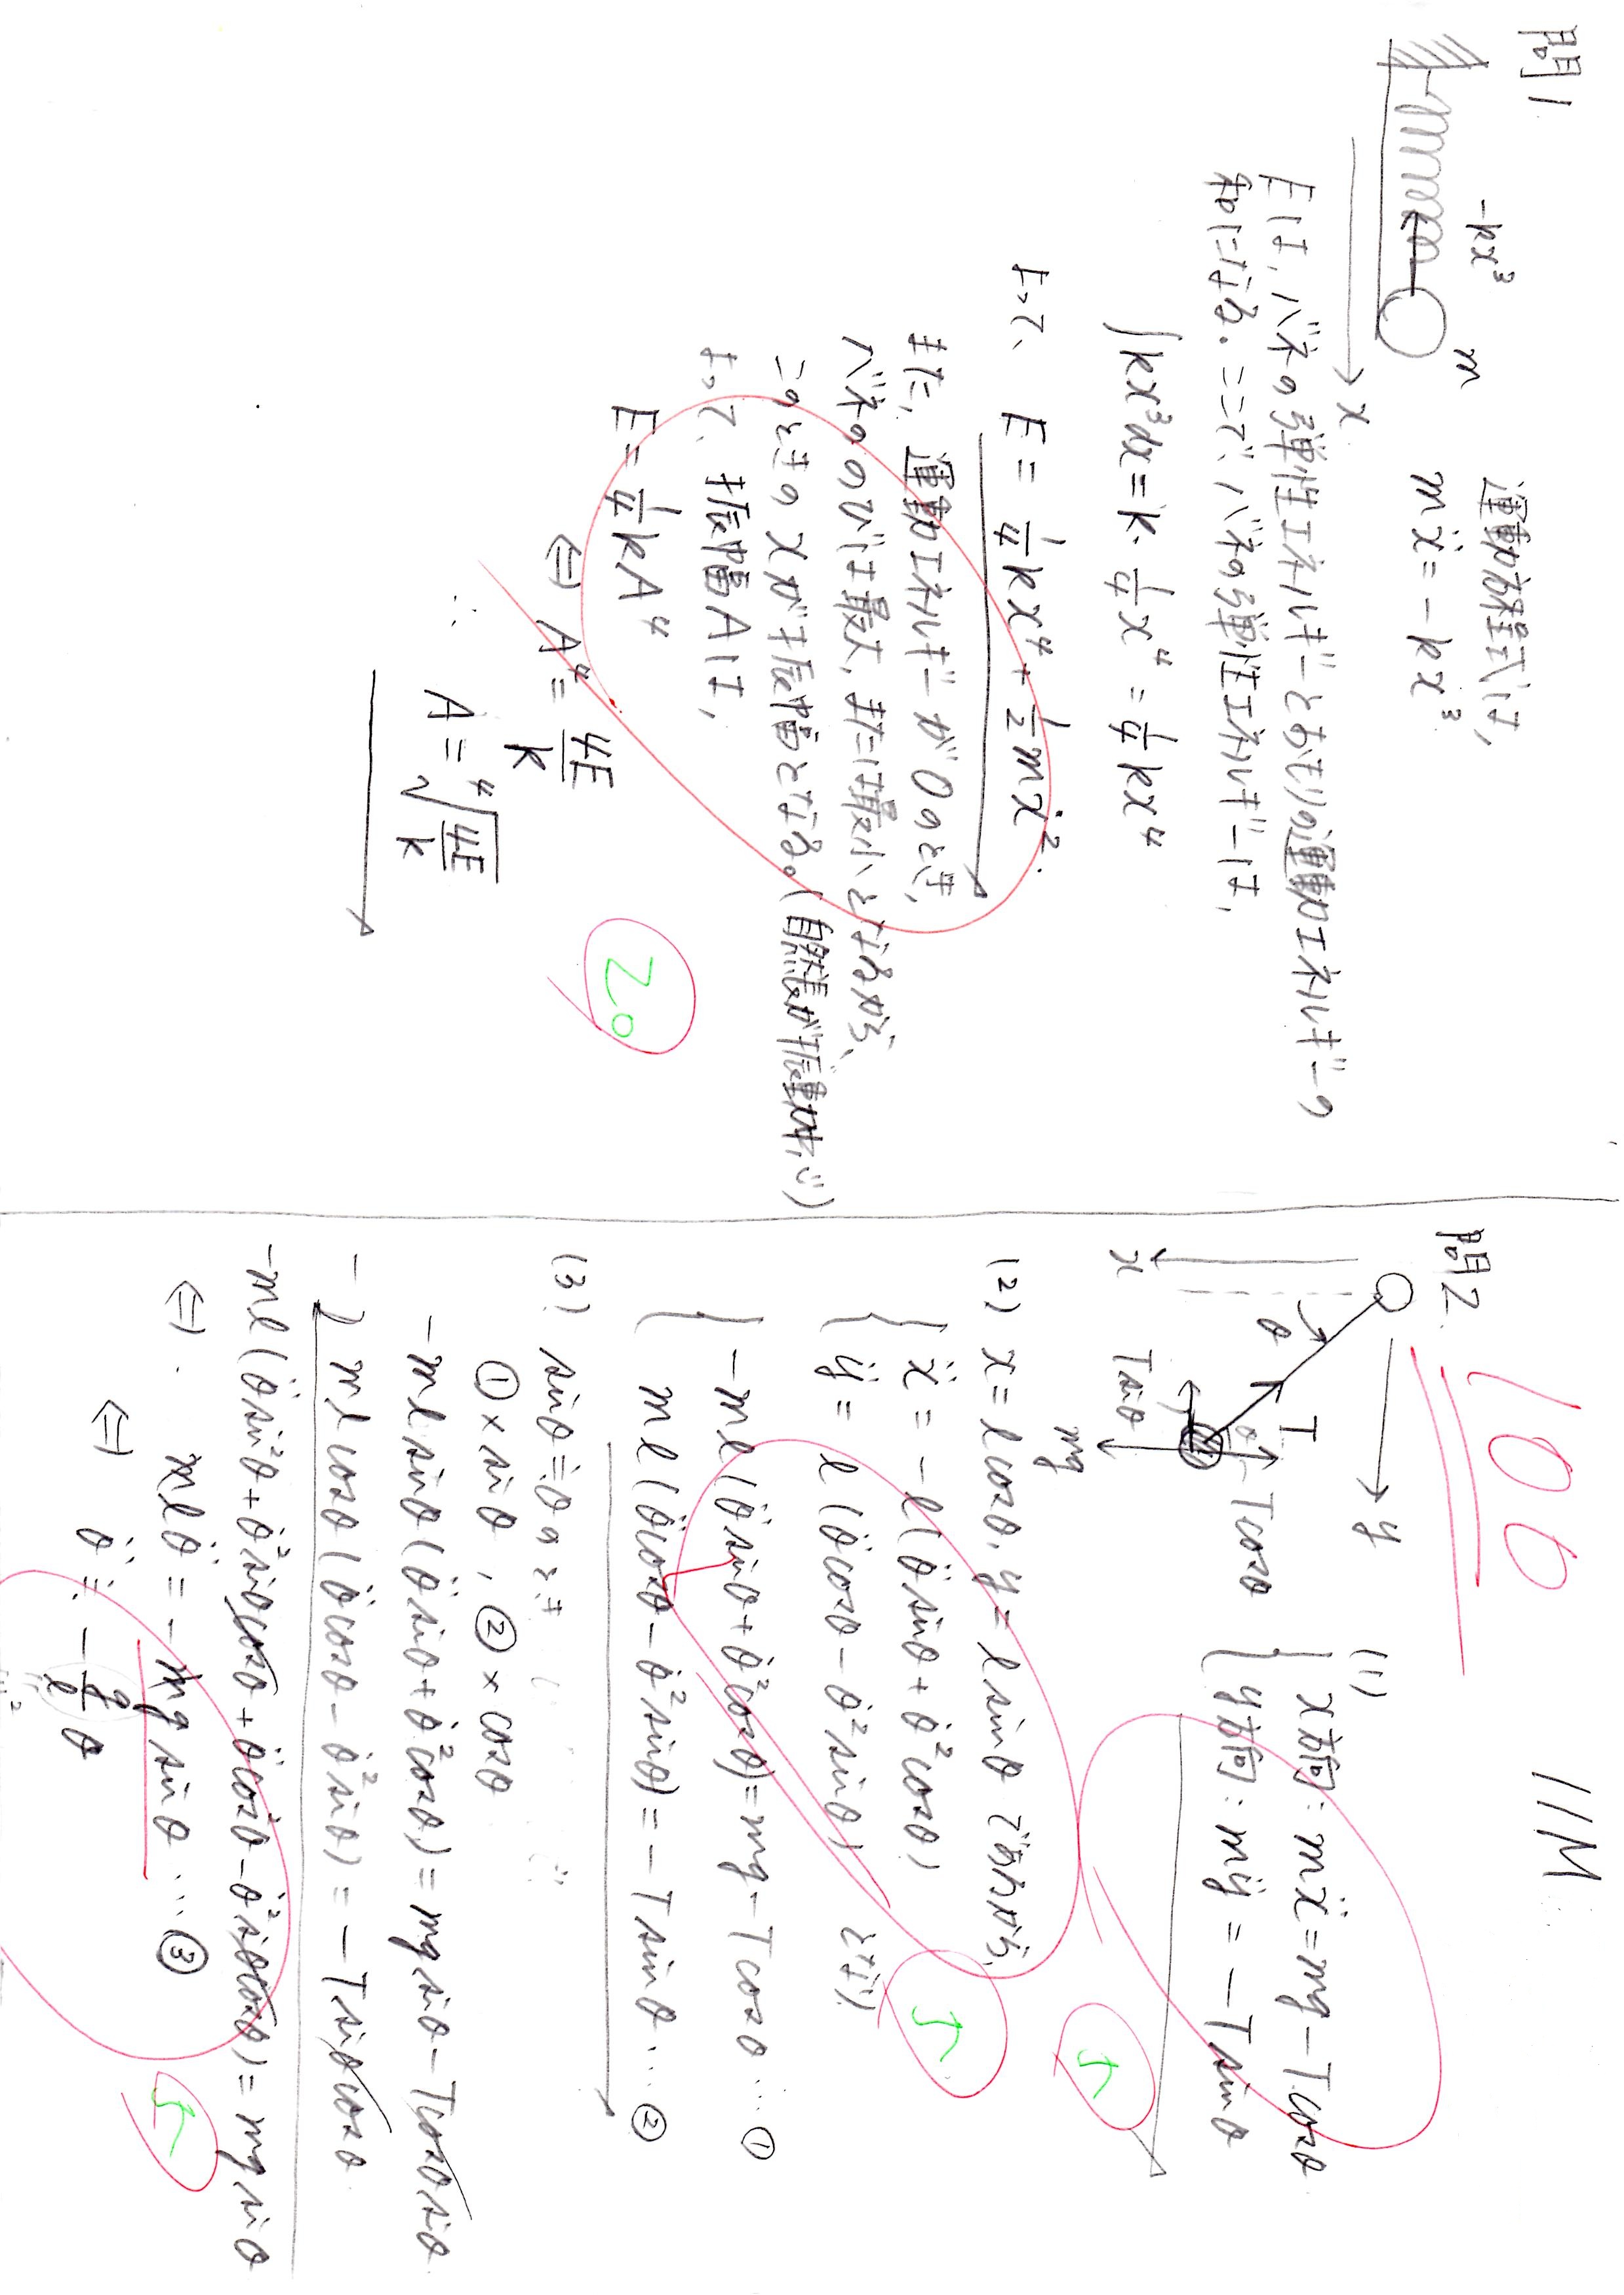 問1
-kx³
m
x
運動方程式は,
mẍ = -kx³
Eは, バネの弾性エネルギーとおもりの運動エネルギーの
和になる. ここで, バネの弾性エネルギーは,
∫kx³dx = k・1/4 x⁴ = 1/4 kx⁴
よって, E = 1/4 kx⁴ + 1/2 mẋ².
また, 運動エネルギーが0のとき,
バネののびは最大, または最小となるから,
このときのxが振幅となる。(自然長が振動中心)
よって, 振幅Aは,
E = 1/4 kA⁴
⇔ A⁴ = 4E/k
∴ A = ⁴√(4E/k)
20
100
11M
問2
x
y
θ
T
θ
Tcosθ
Tsinθ
mg
(1)
{ x方向: mẍ = mg - Tcosθ
y方向: mÿ = - Tsinθ
5
(2) x = lcosθ, y = lsinθ であるから,
{ ẍ = -l(θ̈sinθ + θ̇²cosθ)
ÿ = l(θ̈cosθ - θ̇²sinθ) となり,
5
{ -ml(θ̈sinθ + θ̇²cosθ) = mg - Tcosθ … ①
ml(θ̈cosθ - θ̇²sinθ) = - Tsinθ … ②
(3) sinθ ≒ θ のとき
①×sinθ, ②×cosθ
-mlsinθ(θ̈sinθ + θ̇²cosθ) = mgsinθ - Tcosθsinθ
-) mlcosθ(θ̈cosθ - θ̇²sinθ) = - Tsinθcosθ
-ml(θ̈sin²θ + θ̇²sinθcosθ + θ̈cos²θ - θ̇²sinθcosθ) = mgsinθ
⇔ mlθ̈ = -mgsinθ … ③
⇔ θ̈ ≒ - g/l θ
5